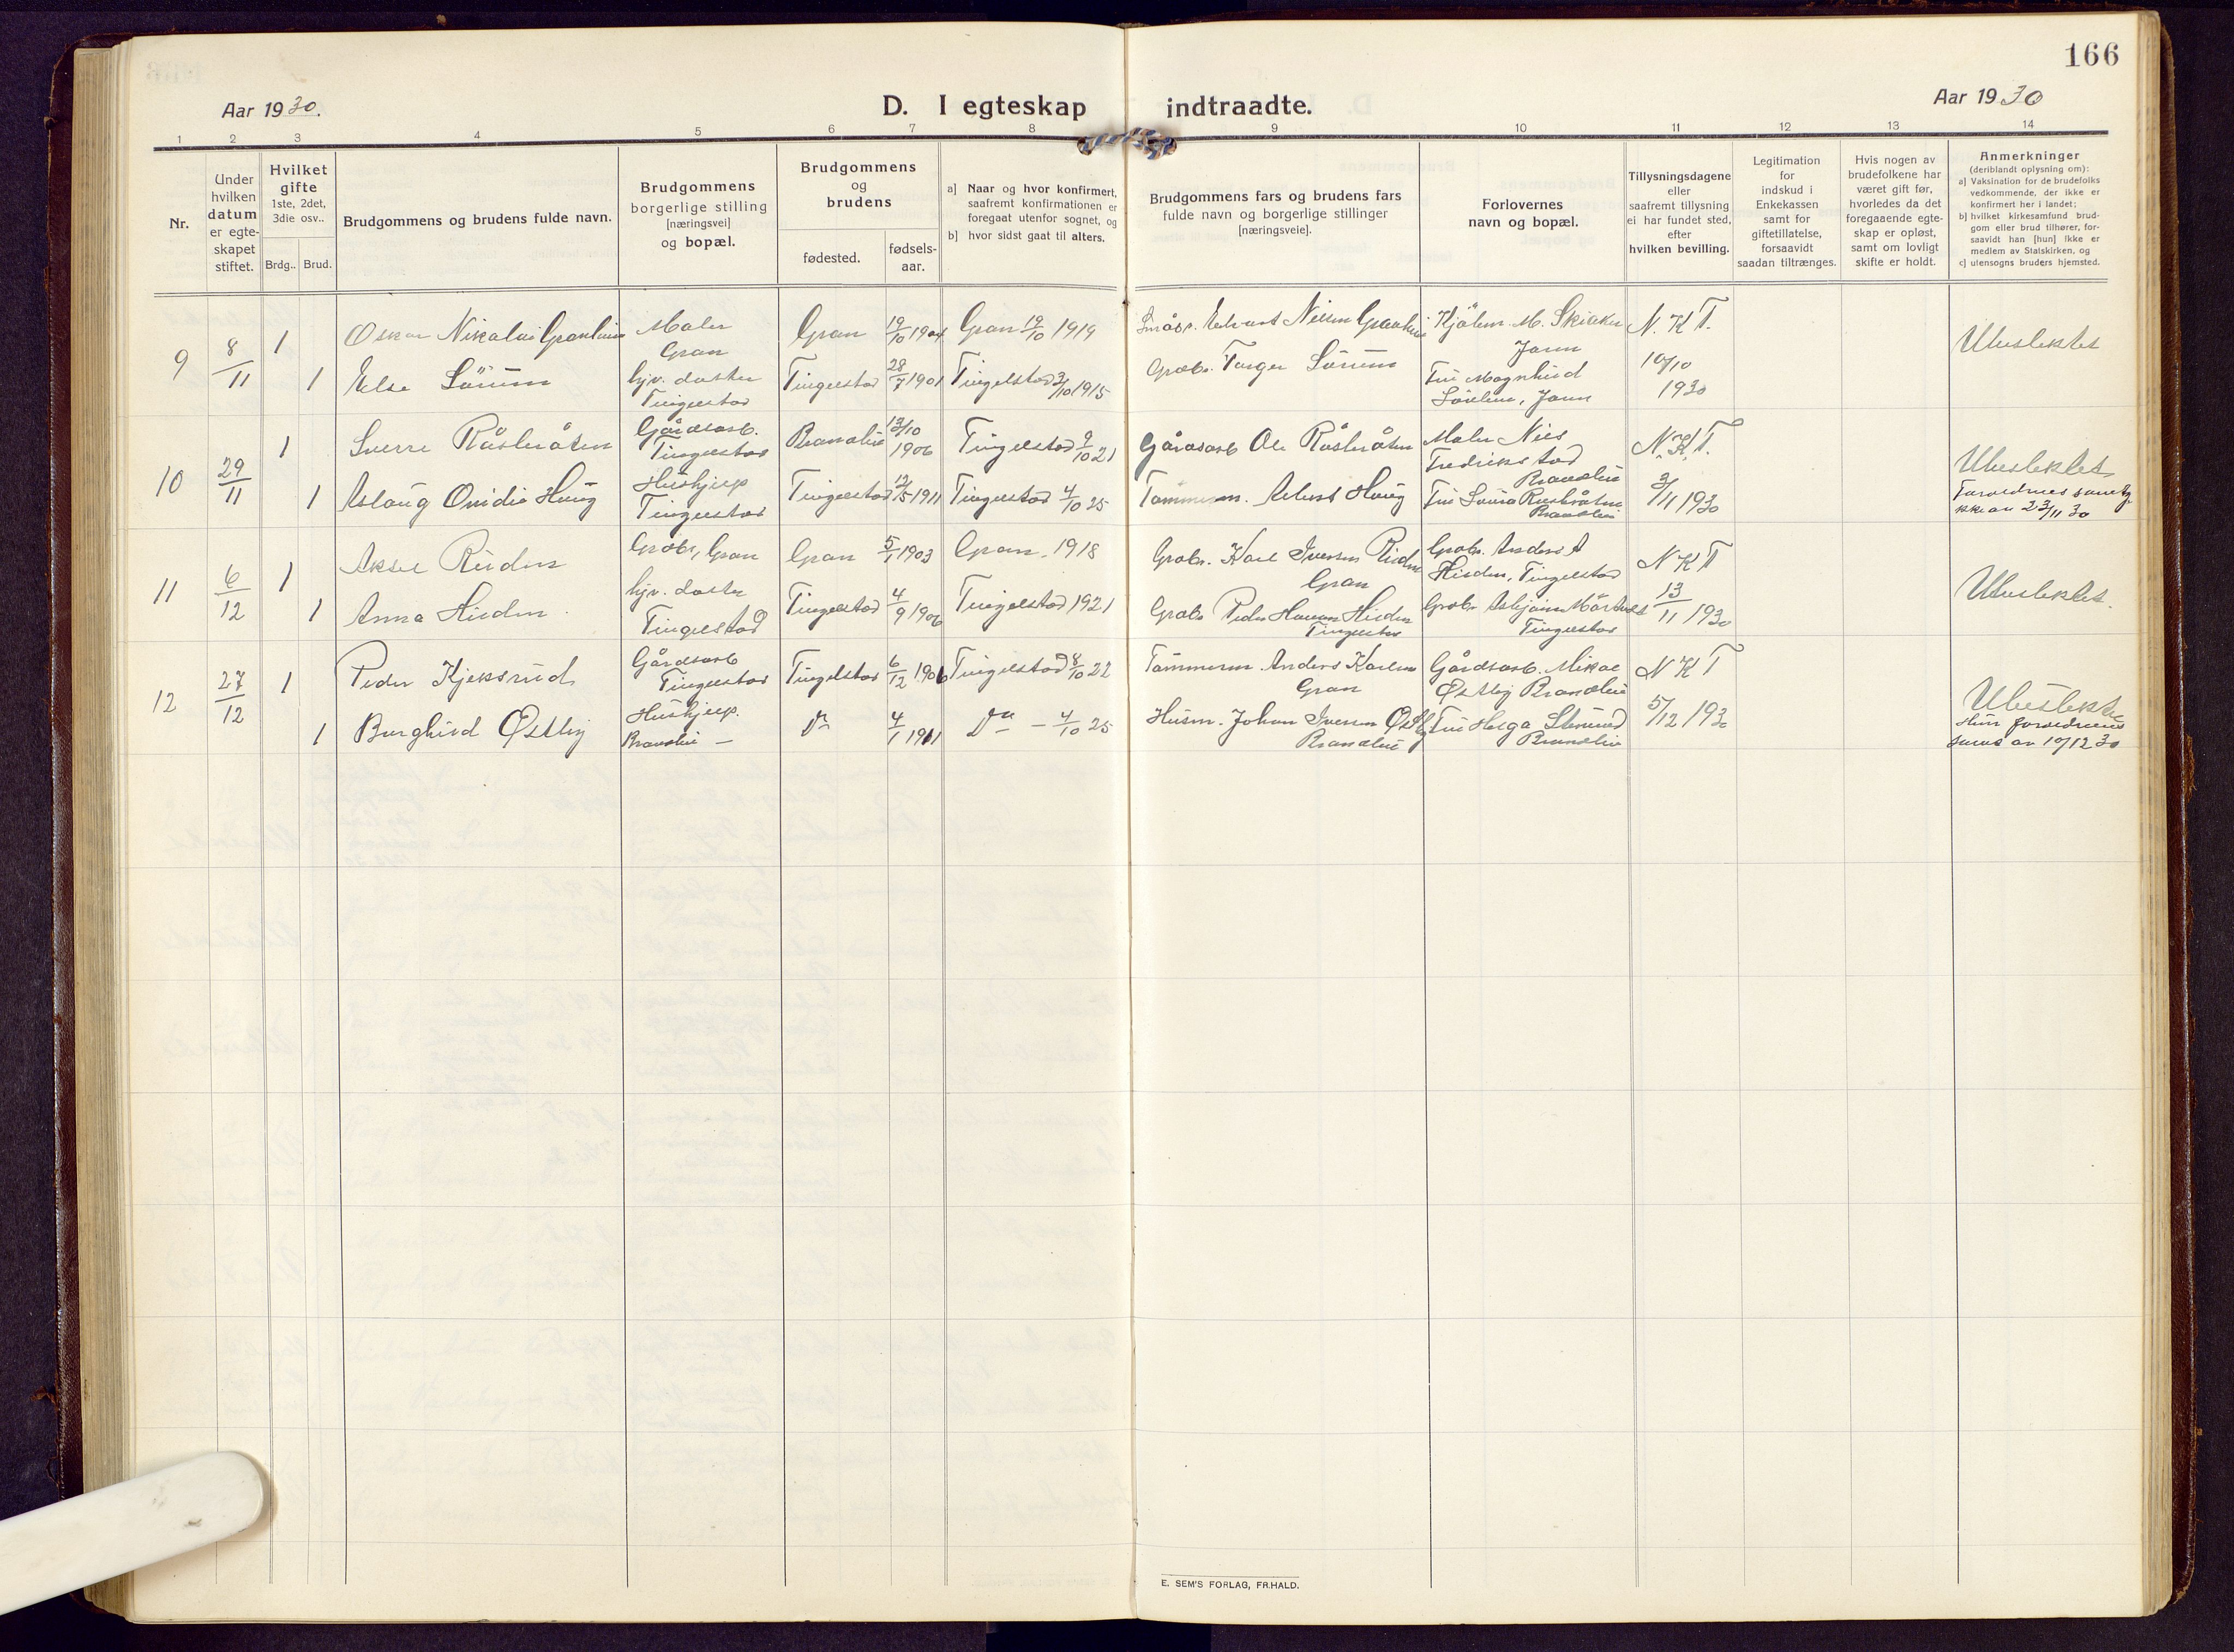 166
Aar 1930.
D. I egteskap indtraadte.
Aar 1930
1 2 3 4 5 6 7 8 9 10 11 12 13 14
Nr.
Under
hvilken
datum
er egte-
skapet
stiftet.
Hvilket
gifte
1ste, 2det,
3die osv..
Brdg.. Brud.
Brudgommens og brudens fulde navn.
Brudgommens
borgerlige stilling
[næringsvei]
og bopæl.
Brudgommens
og
brudens
fødested.
fødsels-
aar.
a] Naar og hvor konfirmert,
saafremt konfirmationen er
foregaat utenfor sognet, og
b] hvor sidst gaat til alters.
Brudgommens fars og brudens fars
fulde navn og borgerlige stillinger
[næringsveie].
Forlovernes
navn og bopæl.
Tillysningsdagene
eller
saafremt tillysning
ei har fundet sted,
efter
hvilken bevilling.
Legitimation
for
indskud i
Enkekassen
samt for
giftetillatelse,
forsaavidt
saadan tiltrænges.
Hvis nogen av
brudefolkene har
været gift før,
hvorledes da det
foregaaende egte-
skap er opløst,
samt om lovligt
skifte er holdt.
Anmerkninger
(deriblandt oplysning om):
a] Vaksination for de brudefolks
vedkommende, der ikke er
konfirmert her i landet;
b] hvilket kirkesamfund brud-
gom eller brud tilhører, for-
saavidt han [hun] ikke er
medlem av Statskirken, og
c] utensogns bruders hjemsted.
9 8/11 1 Oskar Nikolai Maler Gran Gran 19/10 1904 Gran 19/10 1919
1 Else Sörum hjv. datter Tingelstad Tingelstad 28/7 1901 Tingelstad 3/10 1915
Edvart Nilsen M. Jaren N. K T.
Grdbr. Torger Sörum Jaren 10/10 1930
Ubeslektet
10 29/11 1 Sverre Gårdsarb. Tingelstad Brandbu 13/10 1906 Tingelstad 2/10 21
1 Aslaug Ovidia Haug Hushjelp Tingelstad Tingelstad 1911 Tingelstad 4/10 25
Gårdsarb Ole Maler Nils Fredrikstad Brandbu N. K. T.
Haug Brandbu 3/11 1930
Ubeslektet
11 6/12 1 Aksel Ruden Grdbr, Gran Gran 5/1 1903 Gran 1918
1 Anna Hilden hjv. datter Tingelstad Tingelstad 4/9 1906 Tingelstad 1921
Grdbr. Karl Iversen Ruden Gran Grdbr. Anders A Hilden, Tingelstad N K T
Grdbr Peder Hansen Hilden Tingelstad Grdbr Asbjörn Tingelstad 13/11 1930
Ubeslektet.
12 27/12 1 Peder Kjeksrud Gårdsarb Tingelstad Tingelstad 6/12 1906 Tingelstad 8/10 22
1 Borghild Østby Hushjelp. Brandbu — Do 4/1 1911 Do — 4/10 25
Tömmerm. Anders Karlsen Gran Gårdsarb. Mikal Østby Brandbu N K T
Husm. Johan Iversen Østby Brandbu Helga Brandbu 5/12 1930
Ubeslektet
E. SEM'S FORLAG, FR.HALD.